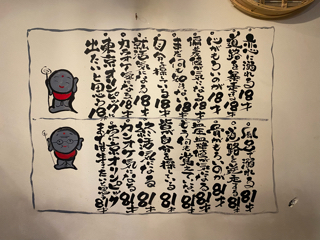 恋に溺れる18才
道路を暴走する18才
心がもろいのが18才
偏差値が気になる18才
まだ何も知らない18才
自分を探している18才
なる18才
カラオケ なる18才
東京オリンピックに
出たいと思う18才
風呂で溺れる81才
道路を逆走する81才
骨がもろいのが81才
血糖値が気になる81才
もう何も覚えていない81才
皆が自分を探している81才
なる81才
カラオケ なる81才
東京オリンピック
まで生きたいと思う81才